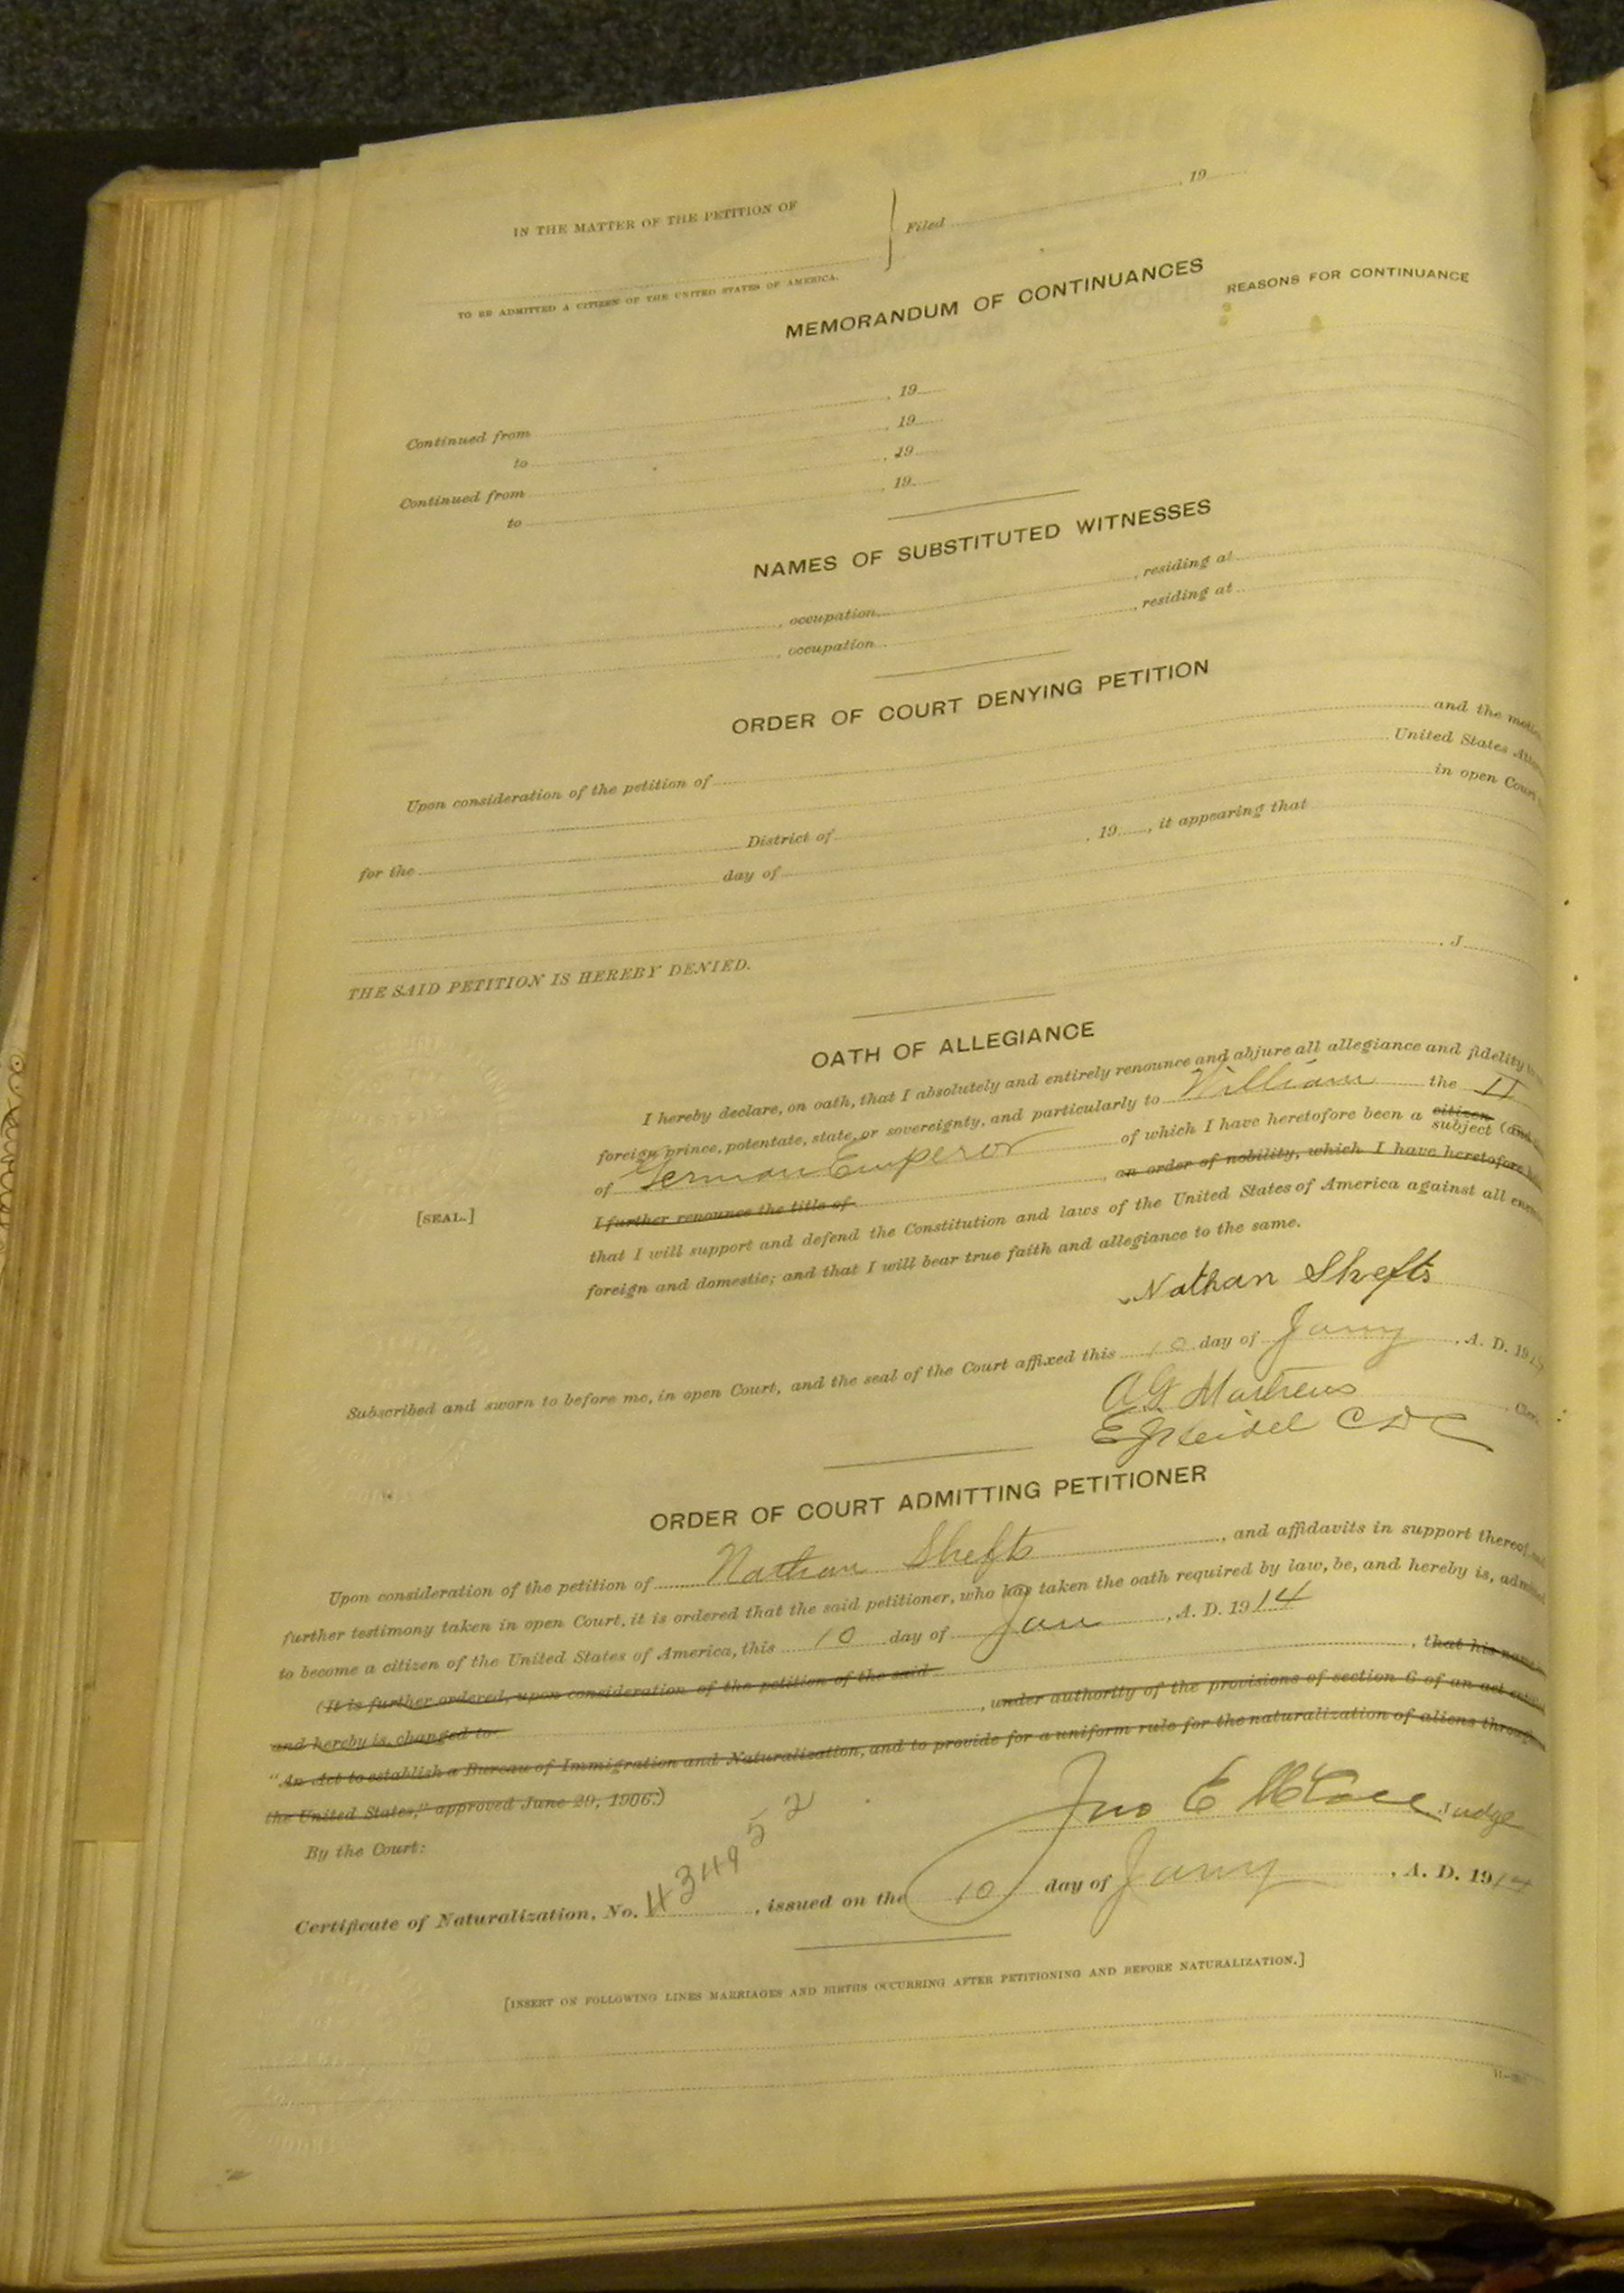 IN THE MATTER OF THE PETITION OF
Filed , 19
TO BE ADMITTED A CITIZEN OF THE UNITED STATES OF AMERICA.
MEMORANDUM OF CONTINUANCES
REASONS FOR CONTINUANCE
Continued from , 19
to , 19
Continued from , 19
to , 19
NAMES OF SUBSTITUTED WITNESSES
, occupation , residing at
, occupation , residing at
ORDER OF COURT DENYING PETITION
Upon consideration of the petition of and the
United States
for the District of in open Court
day of , 19 , it appearing that
THE SAID PETITION IS HEREBY DENIED.
, J
OATH OF ALLEGIANCE
I hereby declare, on oath, that I absolutely and entirely renounce and abjure all allegiance and fidelity
foreign prince, potentate, state, or sovereignty, and particularly to William the II
of German Emperor of which I have heretofore been a citizen subject
I further renounce the title of , an order of nobility, which I have heretofore
[SEAL.]
that I will support and defend the Constitution and laws of the United States of America against all
foreign and domestic; and that I will bear true faith and allegiance to the same.
Nathan Shefts
Subscribed and sworn to before me, in open Court, and the seal of the Court affixed this 10 day of Jany , A. D. 19
A G Mathews
C D C
ORDER OF COURT ADMITTING PETITIONER
Upon consideration of the petition of Nathan Shefts , and affidavits in support thereof,
further testimony taken in open Court, it is ordered that the said petitioner, who has taken the oath required by law, be, and hereby is, admitted
to become a citizen of the United States of America, this 10 day of Jan , A. D. 1914
(It is further ordered, upon consideration of the petition of the said , that his name
and hereby is, changed to , under authority of the provisions of section 6 of an act
"An Act to establish a Bureau of Immigration and Naturalization, and to provide for a uniform rule for the naturalization of aliens
the United States," approved June 29, 1906.)
By the Court:
Jno E McCall Judge
Certificate of Naturalization, No. 434952 , issued on the 10 day of Jany , A. D. 1914
[INSERT ON FOLLOWING LINES MARRIAGES AND BIRTHS OCCURRING AFTER PETITIONING AND BEFORE NATURALIZATION.]